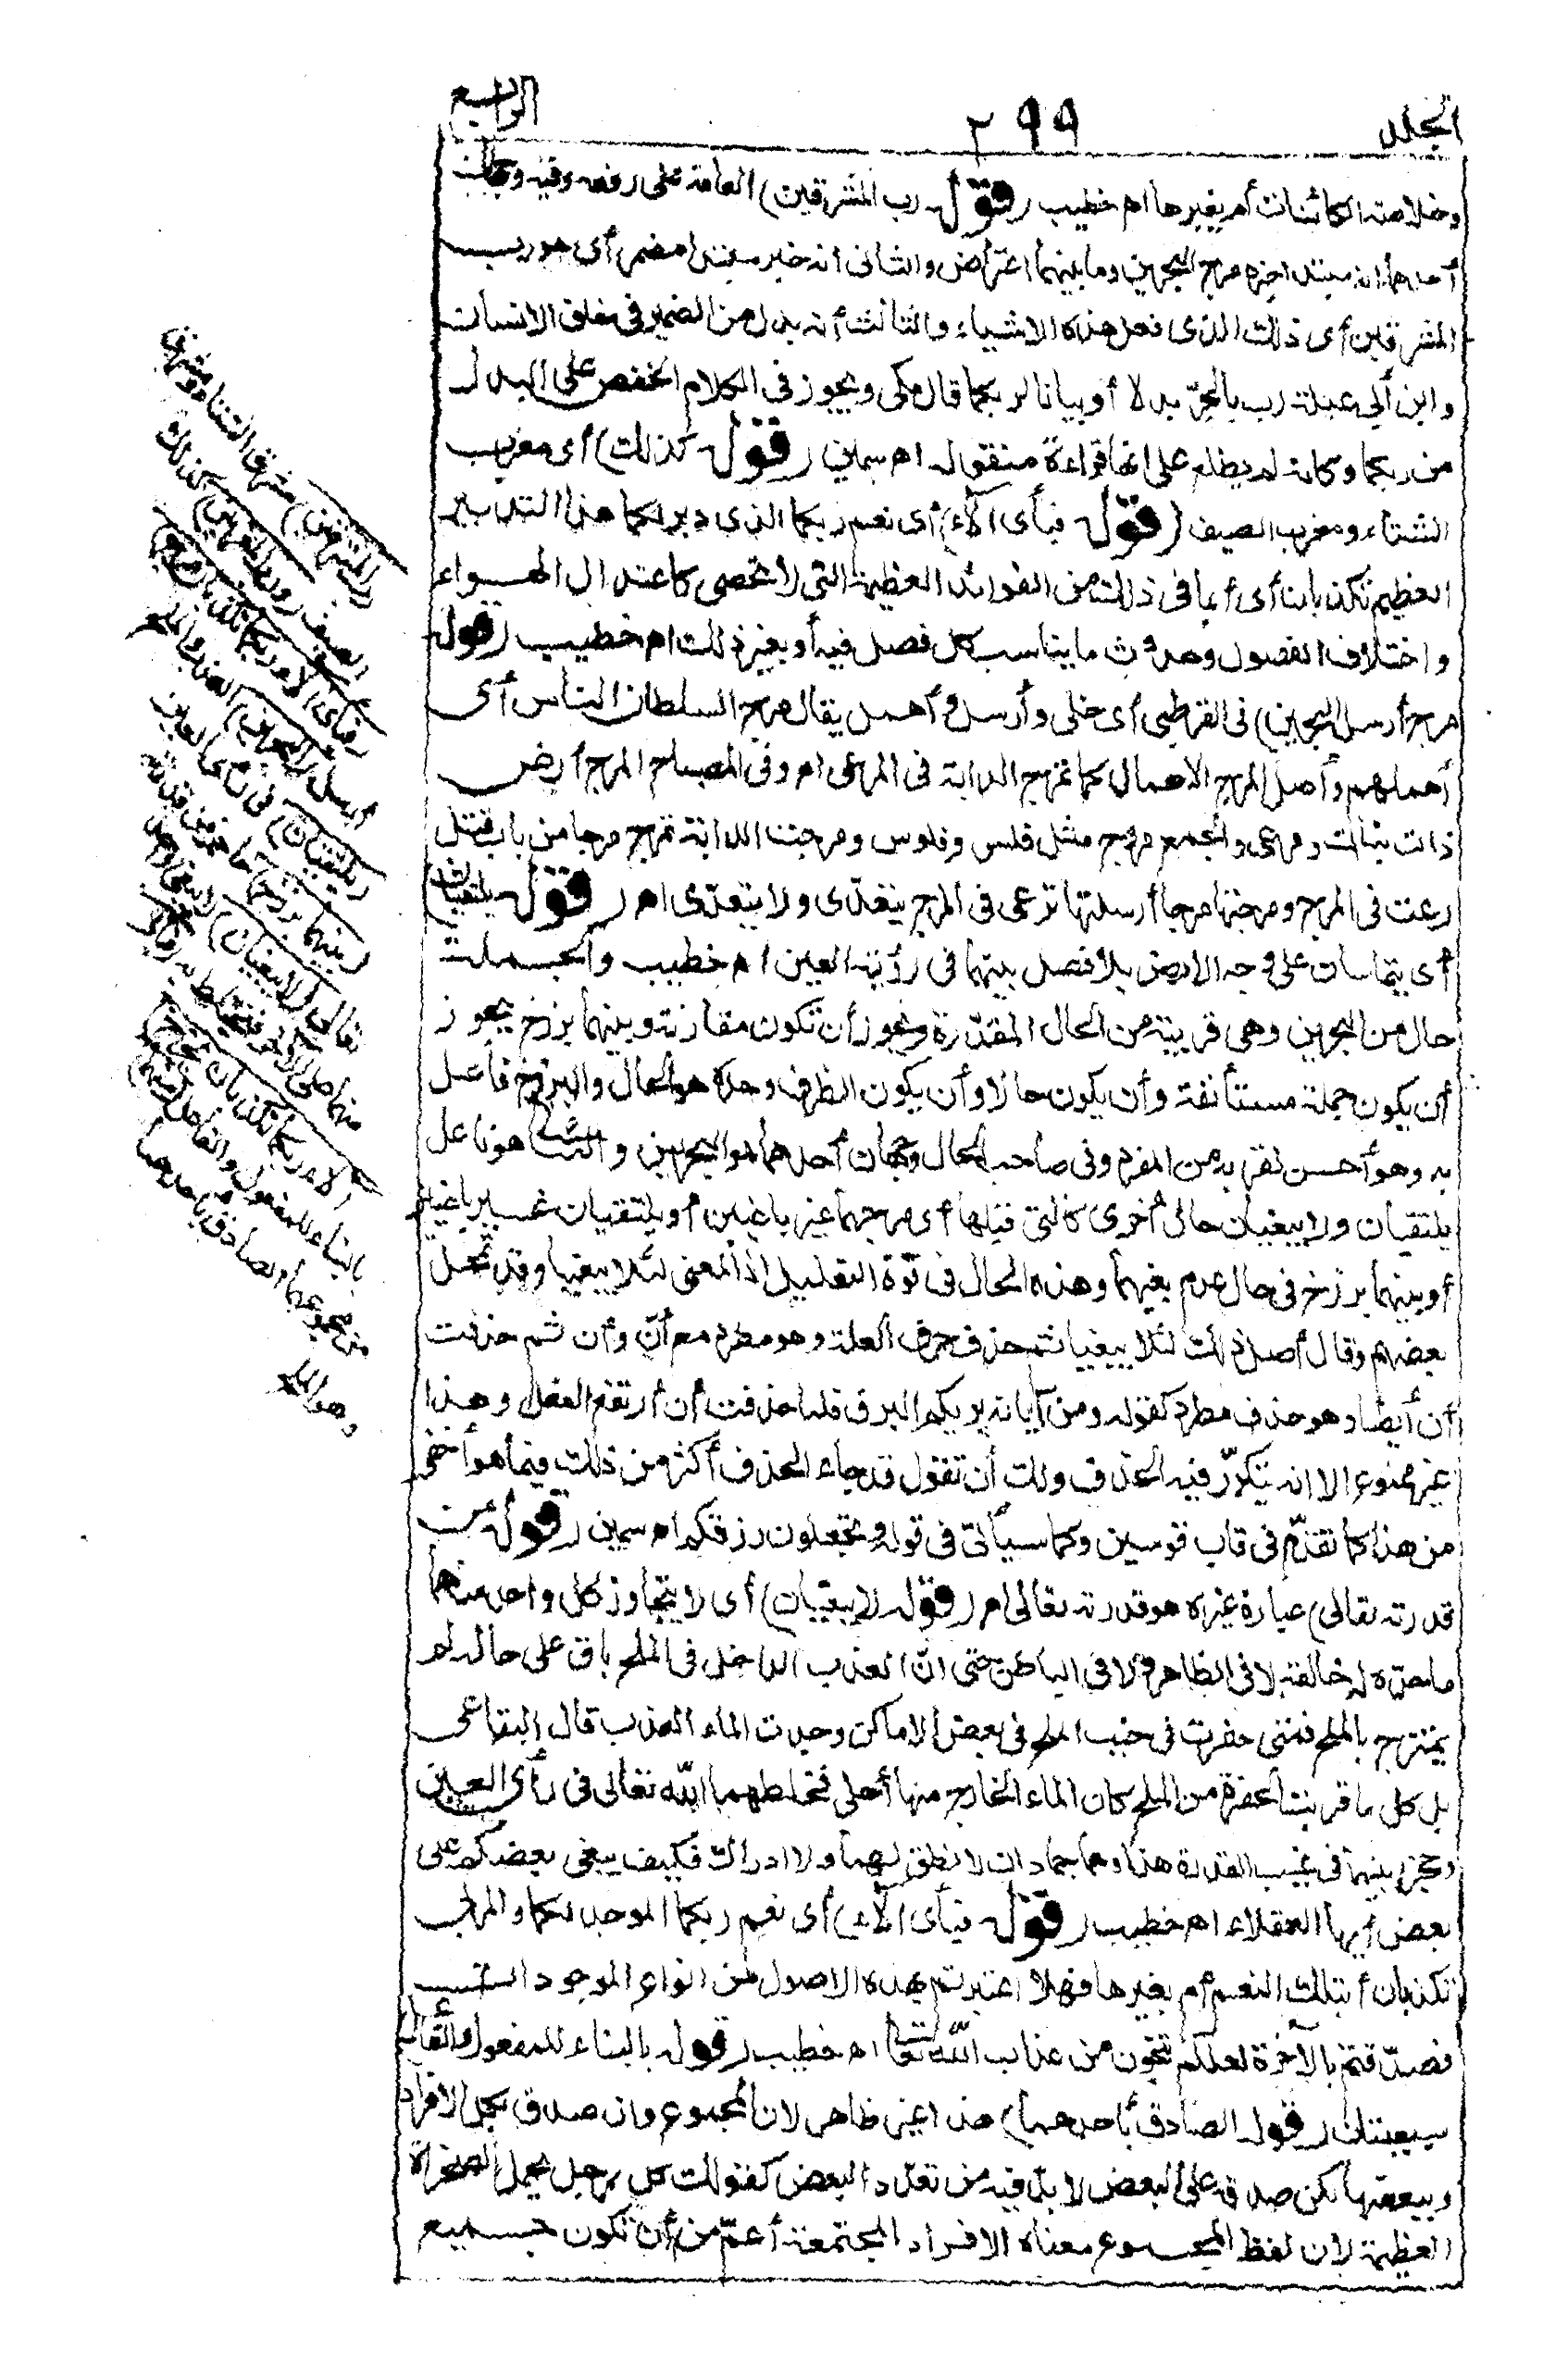 الجلد
٢٩٩
الرابع
وخلاصة الكائنات أم بغيرها اه خطيب (قوله رب المشرقين) العامة على رفعه وفيه وجهان
أحدهما انه مبتدا خبره مرج البحرين وما بينهما اعتراض والثانى انه خبر مبتدا مضمر أى هو رب
المشرقين أى ذلك الذى فعل هذه الاشياء والثالث أنه بدل من الضمير فى خلق الانسان
وابن أبى عبلة رب بالجرّ بدلا أو بيانا لربكما قال مكى ويجوز فى الكلام الخفض على البدل
من ربكما وكانه لم يطلع على انها قراءة منقولة اه سمين (قوله كذلك) أى مغرب
الشتاء ومغرب الصيف (قوله فبأى آلاء) أى نعم ربكما الذى دبر لكما هذا التدبير
العظيم تكذبان أى أبما فى ذلك من الفوائد العظيمة التى لا تحصى كاعتدال الهواء
واختلاف الفصول وحدوث ما يناسب كل فصل فيه أو بغير ذلك اه خطيب (قوله
مرج أرسل البحرين) فى القرطبى أى خلى وأرسل وأهمل يقال مرج السلطان الناس أى
أهملهم وأصل المرج الاهمال كما تمرج الدابة فى المرعى اه وفى المصباح المرج أرض
ذات نبات ومرعى والجمع مروج مثل فلس وفلوس ومرجت الدابة تمرج مرجا من باب قتل
رعت فى المرج ومرجتها مرجا أرسلتها ترعى فى المرج يتعدّى ولا يتعدّى اه (قوله يلتقيان)
أى يتماسان على وجه الارض بلا فصل بينهما فى رؤية العين اه خطيب والجملة
حال من البحرين وهى قريبة من الحال المقدّرة ويجوز أن تكون مقارنة وبينهما برزخ يجوز
أن يكون جملة مستأنفة وأن يكون حالا وأن يكون الظرف وحده هو الحال والبرزخ فاعل
به وهو أحسن لقربه من المفرد وفى صاحب الحال وجهان أحدهما هو البحرين والثانى هو فاعل
يلتقيان ولا يبغيان حال أخرى كالتى قبلها أى مرجهما غير باغيين أو يلتقيان غير باغيين
أو بينهما برزخ فى حال عدم بغيهما وهذه الحال فى قوّة التعليل اذ المعنى لئلا يبغيا وقد تمحل
بعضهم وقال أصل ذلك لئلا يبغيا ثم حذف حرف العلة وهو مطرد مع أنّ وأن ثم حذفت
أن أيضا وهو حذف مطرد كقوله ومن آياته يريكم البرق فلما حذفت أن ارتفع الفعل وهذا
غير ممنوع الا انه يتكرّر فيه الحذف ولك أن تقول قد جاء الحذف أكثر من ذلك فيما هو أخفى
من هذا كما تقدّم فى قاب قوسين وكما سيأتى فى قوله وتجعلون رزقكم اه سمين (قوله من
قدرته تعالى) عبارة غيره هو قدرته تعالى اه (قوله لا يبغيان) أى لا يتجاوز كل واحد منهما
ما حدّه له خالقه لا فى الظاهر ولا فى الباطن حتى انّ العذب الداخل فى الملح باق على حاله لم
يمتزج بالملح فمتى حفرت فى جنب الملح فى بعض الاماكن وجدت الماء العذب قال البقاعى
بل كل ما قربت الحفرة من الملح كان الماء الخارج منها أحلى فخلطهما الله تعالى فى رأى العين
وحجز بينهما فى غيب القدرة هذا وهما جمادان لا نطق لهما ولا ادراك فكيف يبغى بعضكم على
بعض أيها العقلاء اه خطيب (قوله فبأى آلاء) أى نعم ربكما الموجد لكما والمربى
تكذبان أبتلك النعم أم بغيرها فهلا اعتبرتم بهذه الاصول من انواع الموجودات
فصدّقتم بالآخرة لعلكم تنجون من عذاب الله تعالى اه خطيب (قوله بالبناء للمفعول والفاعل)
سبعيتان (قوله الصادق بأحدهما) هذا غير ظاهر لان المجموع وان صدق بكل الافراد
وببعضها لكن صدقه على البعض لا بدّ فيه من تعدّد البعض كقولك كل رجل يحمل الصخرة
العظيمة لان لفظ المجموع معناه الافراد المجتمعة أعمّ من أن تكون جميع
رب المشرقين) مشرق الشتاء ومشرق
الصيف (ورب المغربين) كذلك
(فبأى آلاء ربكما تكذبان مرج)
أرسل (البحرين) العذب والملح
(يلتقيان) فى رأى العين
(بينهما برزخ) حاجز من قدرته
تعالى (لا يبغيان) لا يبغى واحد
منهما على الآخر فيختلط به (فبأى
آلاء ربكما تكذبان يخرج)
بالبناء للمفعول والفاعل (منهما)
من مجموعهما الصادق بأحدهما
وهو الملح